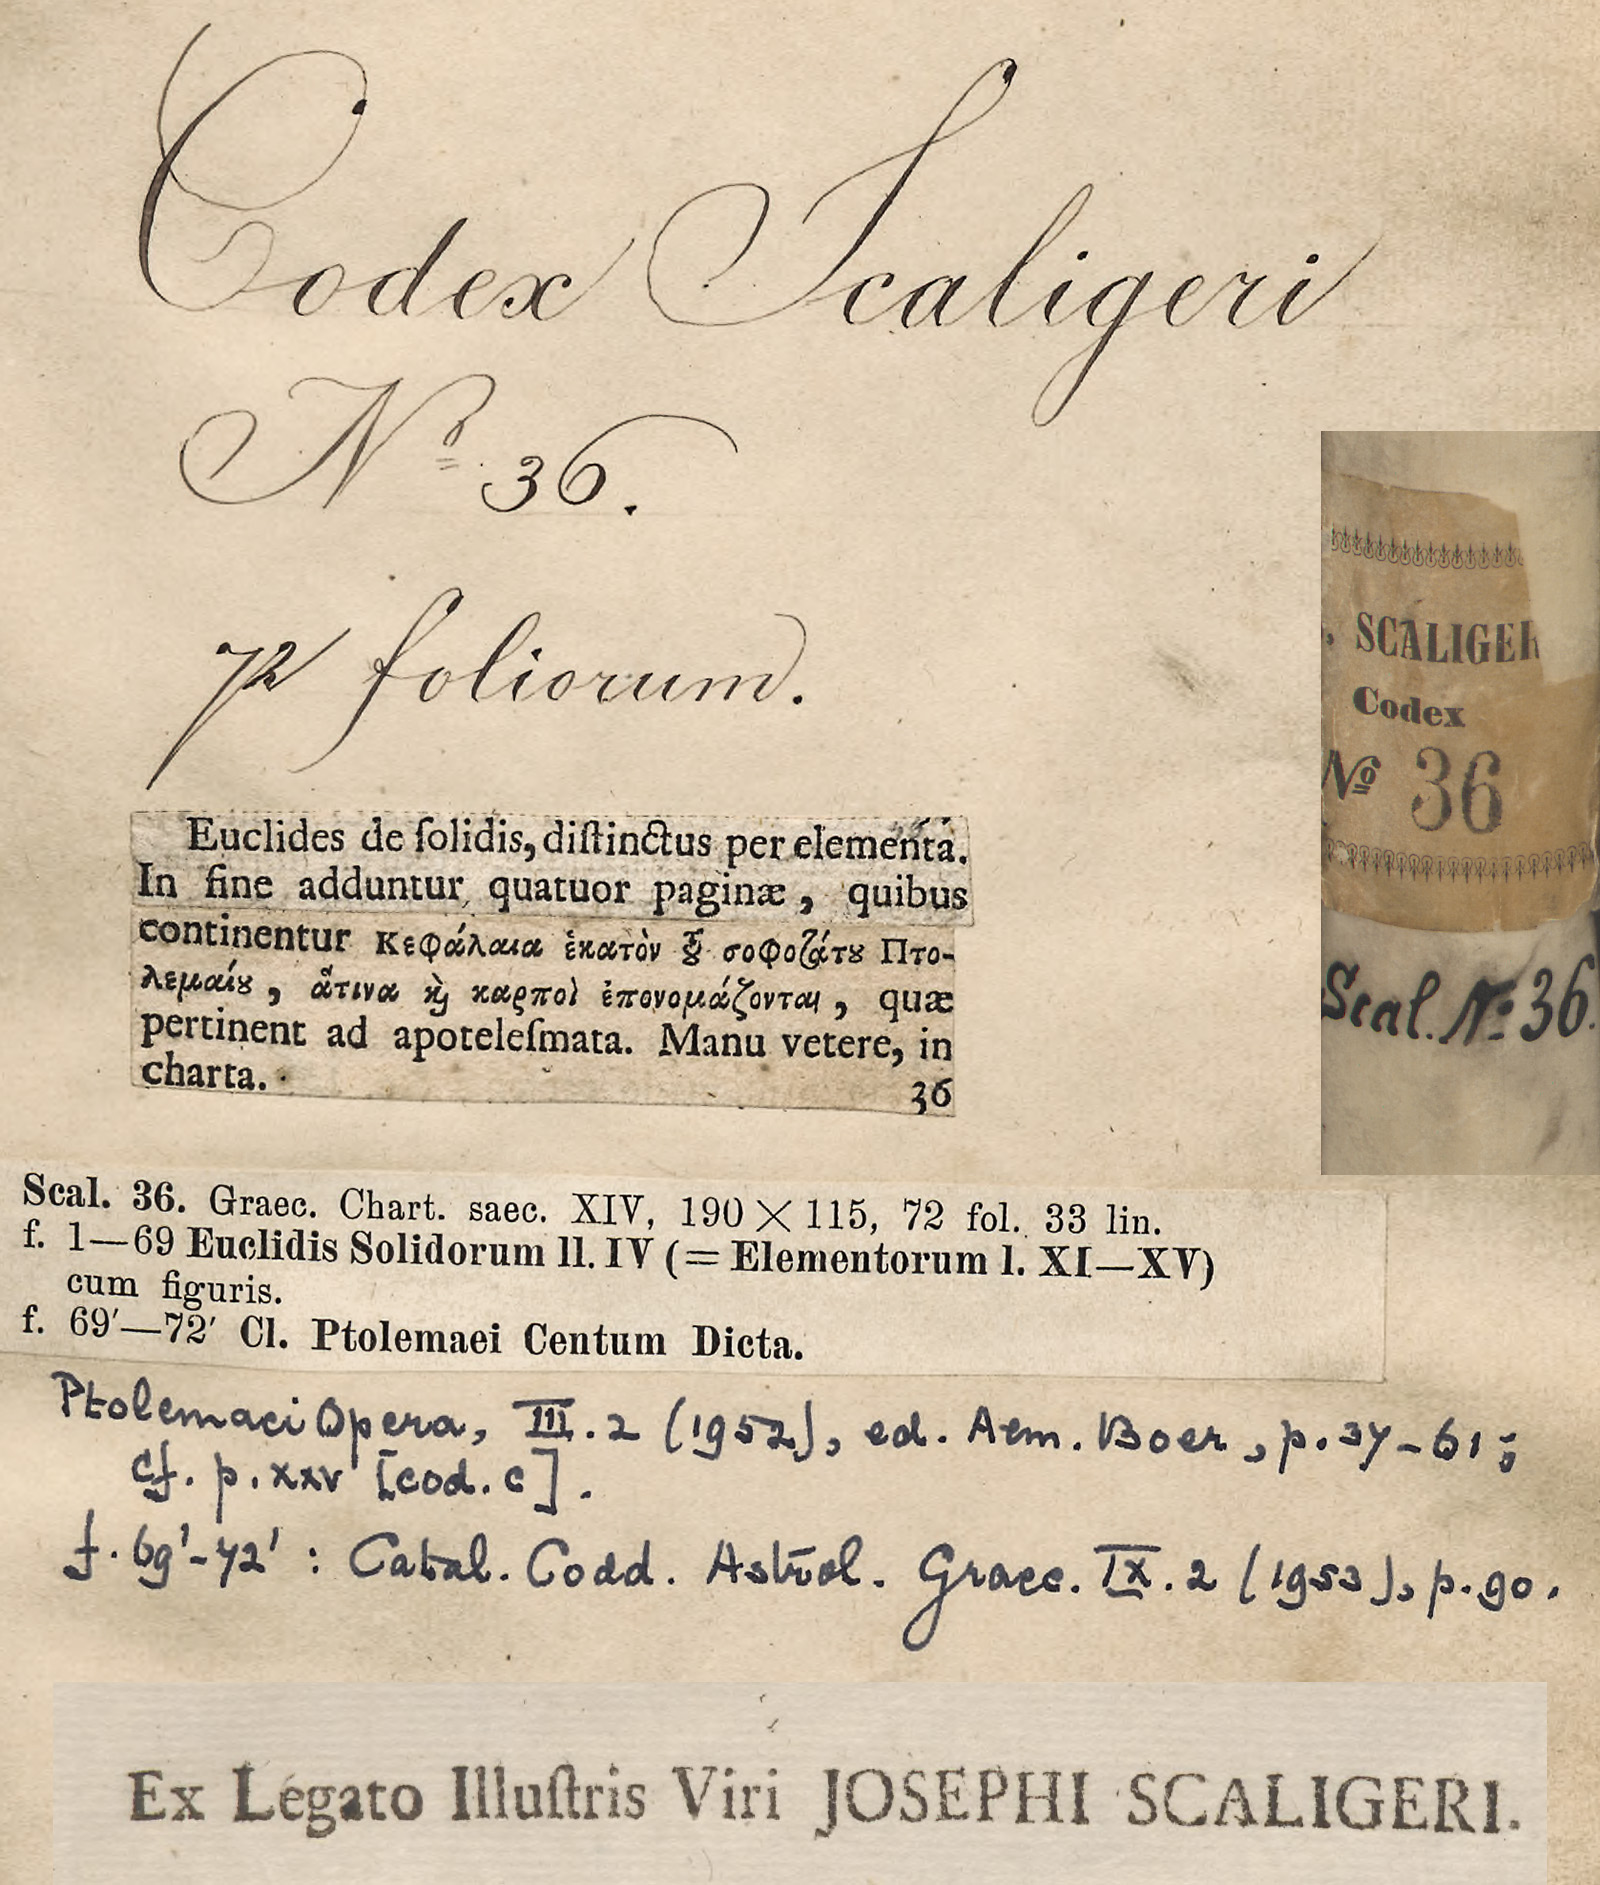 Codex Scaligeri
Nº 36.
72 foliorum.
Euclides de ſolidis, diſtinctus per elementa.
In fine adduntur quatuor paginæ, quibus
continentur Κεφάλαια ἑκατὸν τȣ͂ σοφοϛάτȣ Πτο-
λεμαίȣ, ἅτινα ϗ̀ καρποὶ ἐπονομάζονται, quæ
pertinent ad apoteleſmata. Manu vetere, in
charta.
36
. SCALIGER
Codex
Nº 36
Scal. Nº 36.
Scal. 36. Graec. Chart. saec. XIV, 190 × 115, 72 fol. 33 lin.
f. 1—69 Euclidis Solidorum ll. IV (= Elementorum l. XI—XV)
cum figuris.
f. 69′—72′ Cl. Ptolemaei Centum Dicta.
Ptolemaei Opera, III.2 (1952), ed. Aem. Boer, p. 37-61;
cf. p. xxv [cod. c].
f. 69'-72' : Catal. Codd. Astrol. Graec. IX.2 (1953), p. 90.
Ex Legato Illuſtris Viri JOSEPHI SCALIGERI.